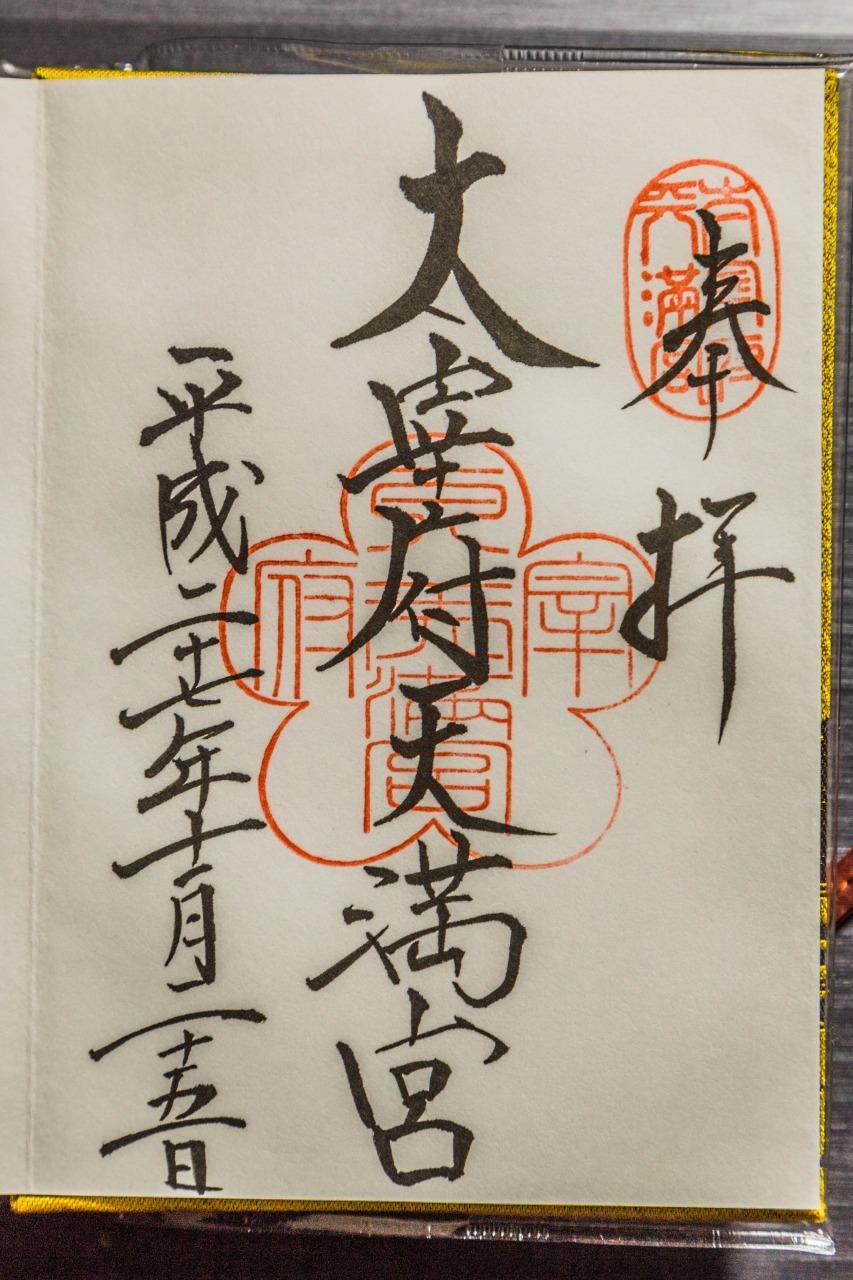 奉拝
太宰府天満宮
平成二十七年十一月二十五日
太宰府
天満宮
太宰府天満宮